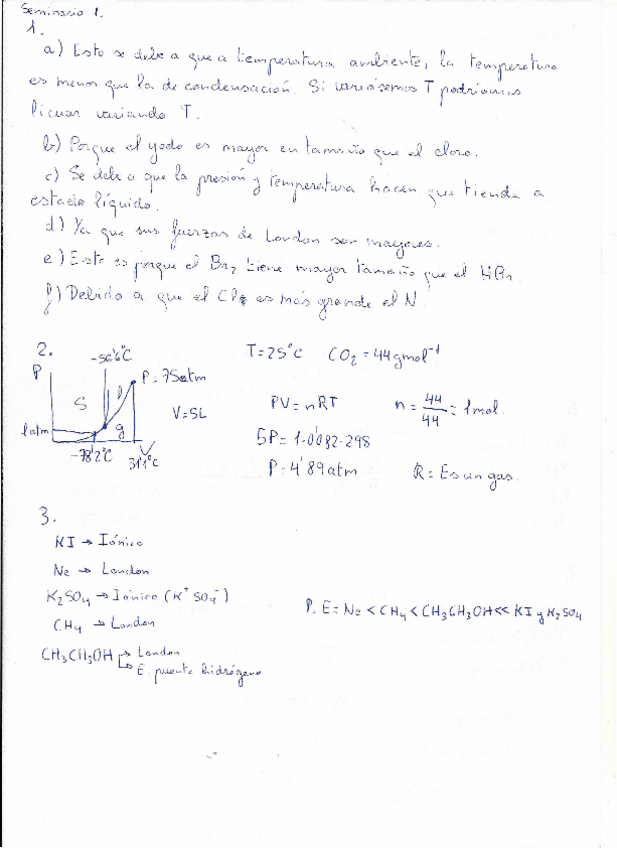 Seminario 1.
1.
a) Esto se debe a que a temperatura ambiente, la temperatura
es menor que la de condensación. Si variásemos T podríamos
licuar variando T.
b) Porque el yodo es mayor en tamaño que el cloro.
c) Se debe a que la presión y temperatura hacen que tienda a
estado líquido.
d) Ya que sus fuerzas de London son mayores.
e) Esto es porque el Br2 tiene mayor tamaño que el HBr.
f) Debido a que el Cl es más grande el N.
2.
-56'6°C
T=25°C CO2 = 44 gmol⁻¹
P
P=75atm
S
l
g
1atm
-78'2°C
31'1°C
V=5L
PV=nRT n=44/44=1mol.
5P=1·0'082·298
P=4'89atm R=Es un gas.
3.
KI → Iónico
N2 → London
K2SO4 → Iónico (K⁺ SO4⁻)
CH4 → London
CH3CH2OH → London
→ E. puente hidrógeno
P.E = N2 < CH4 < CH3CH2OH << KI y K2SO4